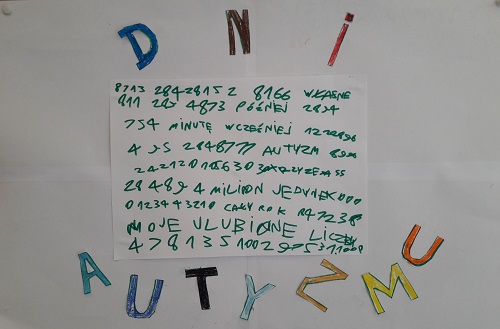 DNI
8713 2842815 2 8166 WŁASNE
811 285 4873 PÓŹNIEJ 2894
754 MINUTĘ WCZEŚNIEJ 1222896
4 95 2848777 AUTYZM
28 48 9 4 MILION JEDYNEK 000
0123443210 CAŁY ROK 847238
MOJE ULUBIONE LICZBY
4 7 8 1 3 5 1002
AUTYZMU